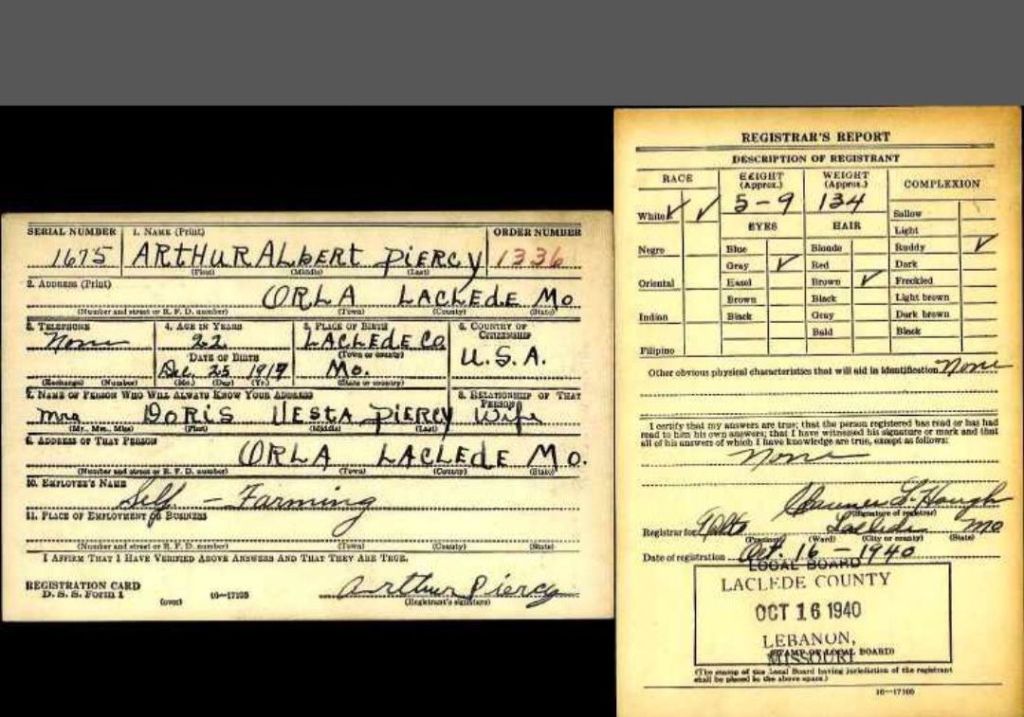 SERIAL NUMBER 1. NAME (Print) ORDER NUMBER
1675 ARTHUR ALBERT PIERCY 1336
(First) (Middle) (Last)
2. ADDRESS (Print)
ORLA LACLEDE MO
(Number and street or R. F. D. number) (Town) (County) (State)
3. TELEPHONE 4. AGE IN YEARS 5. PLACE OF BIRTH 6. COUNTRY OF CITIZENSHIP
None 22 LACLEDE CO. U.S.A.
DATE OF BIRTH (Town or county)
Dec. 25 1917 Mo.
(Exchange) (Number) (Mo.) (Day) (Yr.) (State or country)
7. NAME OF PERSON WHO WILL ALWAYS KNOW YOUR ADDRESS 8. RELATIONSHIP OF THAT PERSON
Mrs DORIS VESTA PIERCY Wife
(Mr., Mrs., Miss) (First) (Middle) (Last)
9. ADDRESS OF THAT PERSON
ORLA LACLEDE MO.
(Number and street or R. F. D. number) (Town) (County) (State)
10. EMPLOYER'S NAME
Self - Farming
11. PLACE OF EMPLOYMENT OR BUSINESS
(Number and street or R. F. D. number) (Town) (County) (State)
I AFFIRM THAT I HAVE VERIFIED ABOVE ANSWERS AND THAT THEY ARE TRUE.
REGISTRATION CARD
D. S. S. Form 1 (over) 16—17105
Arthur Piercy
(Registrant's signature)
REGISTRAR'S REPORT
DESCRIPTION OF REGISTRANT
RACE HEIGHT (Approx.) WEIGHT (Approx.) COMPLEXION
White ✓ ✓ 5-9 134 Sallow
EYES HAIR Light
Negro Blue Blonde Ruddy ✓
Gray ✓ Red Dark
Oriental Hazel Brown ✓ Freckled
Brown Black Light brown
Indian Black Gray Dark brown
Bald Black
Filipino
Other obvious physical characteristics that will aid in identification None
I certify that my answers are true; that the person registered has read or has had
read to him his own answers; that I have witnessed his signature or mark and that
all of his answers of which I have knowledge are true, except as follows:
None
Hough
(Signature of registrar)
Registrar for Laclede Mo
(Precinct) (Ward) (City or county) (State)
Date of registration Oct. 16 - 1940
LOCAL BOARD
LACLEDE COUNTY
OCT 16 1940
LEBANON,
(STAMP OF LOCAL BOARD)
MISSOURI
(The stamp of the Local Board having jurisdiction of the registrant
shall be placed in the above space.)
16—17105